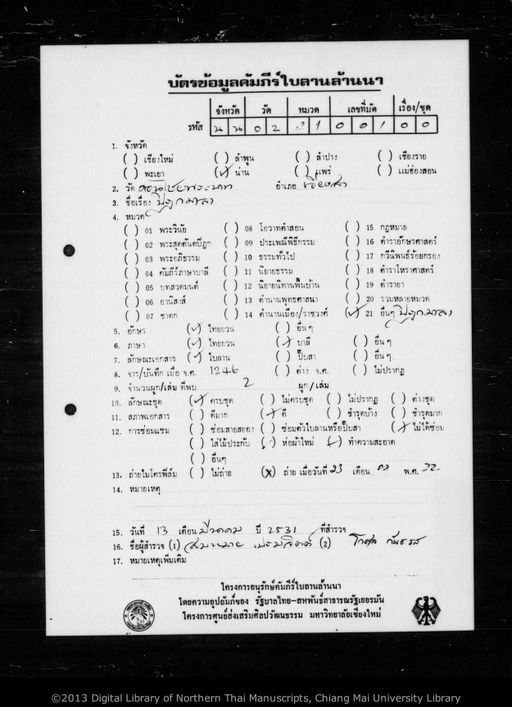 บัตรข้อมูลคัมภีร์ใบลานล้านนา
จังหวัด วัด หมวด เลขที่มัด เรื่อง/ชุด
รหัส น น 0 2 21 0 0 1 0 0
1. จังหวัด ( ) เชียงใหม่ ( ) ลำพูน ( ) ลำปาง ( ) เชียงราย
( ) พะเยา (✓) น่าน ( ) แพร่ ( ) แม่ฮ่องสอน
2. วัด อำเภอ
3. ชื่อเรื่อง ปิฎกมาลา
4. หมวด
( ) 01 พระวินัย ( ) 08 โอวาทคำสอน ( ) 15 กฎหมาย
( ) 02 พระสุตตันตปิฎก ( ) 09 ประเพณีพิธีกรรม ( ) 16 ตำราอักษรศาสตร์
( ) 03 พระอภิธรรม ( ) 10 ธรรมทั่วไป ( ) 17 กวีนิพนธ์ร้อยกรอง
( ) 04 คัมภีร์ภาษาบาลี ( ) 11 นิยายธรรม ( ) 18 ตำราโหราศาสตร์
( ) 05 บทสวดมนต์ ( ) 12 นิยายนิทานพื้นบ้าน ( ) 19 ตำรายา
( ) 06 อานิสงส์ ( ) 13 ตำนานพุทธศาสนา ( ) 20 รวมหลายหมวด
( ) 07 ชาดก ( ) 14 ตำนานเมือง/ราชวงศ์ (✓) 21 อื่นๆ ปิฎกมาลา
5. อักษร (✓) ไทยยวน ( ) อื่นๆ
6. ภาษา (✓) ไทยยวน (✓) บาลี ( ) อื่นๆ
7. ลักษณะเอกสาร (✓) ใบลาน ( ) พับสา ( ) อื่นๆ
8. จาร/บันทึก เมื่อ จ.ศ. 1246 ( ) ค่าง จ.ศ. ( ) ไม่ปรากฏ
9. จำนวนผูก/เล่ม ที่พบ 2 ผูก/เล่ม
10. ลักษณะชุด (✓) ครบชุด ( ) ไม่ครบชุด ( ) ไม่ปรากฏ ( ) ต่างชุด
11. สภาพเอกสาร ( ) ดีมาก (✓) ดี ( ) ชำรุดบ้าง ( ) ชำรุดมาก
12. การซ่อมแซม ( ) ซ่อมสายสยอง ( ) ซ่อมตัวใบลานหรือปั๊บสา (✓) ไม่ได้ซ่อม
( ) ใส่ไม้ประกับ (✓) ห่อผ้าใหม่ (✓) ทำความสะอาด
( ) อื่นๆ
13. ถ่ายไมโครฟิล์ม ( ) ไม่ถ่าย (X) ถ่าย เมื่อวันที่ 23 เดือน พ.ศ. 32
14. หมายเหตุ
15. วันที่ 13 เดือน มีนาคม ปี 2531 ที่สำรวจ
16. ชื่อผู้สำรวจ (1) (2)
17. หมายเหตุเพิ่มเติม
โครงการอนุรักษ์คัมภีร์ใบลานล้านนา
โดยความอุปถัมภ์ของ รัฐบาลไทย-สหพันธ์สาธารณรัฐเยอรมัน
โครงการศูนย์ส่งเสริมศิลปวัฒนธรรม มหาวิทยาลัยเชียงใหม่
©2013 Digital Library of Northern Thai Manuscripts, Chiang Mai University Library